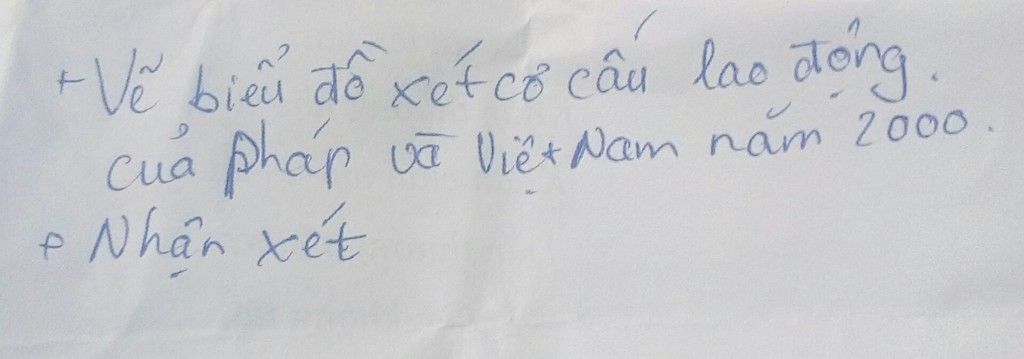 + Vẽ biểu đồ xét cơ cấu lao động.
của Pháp và Việt Nam năm 2000.
+ Nhận xét